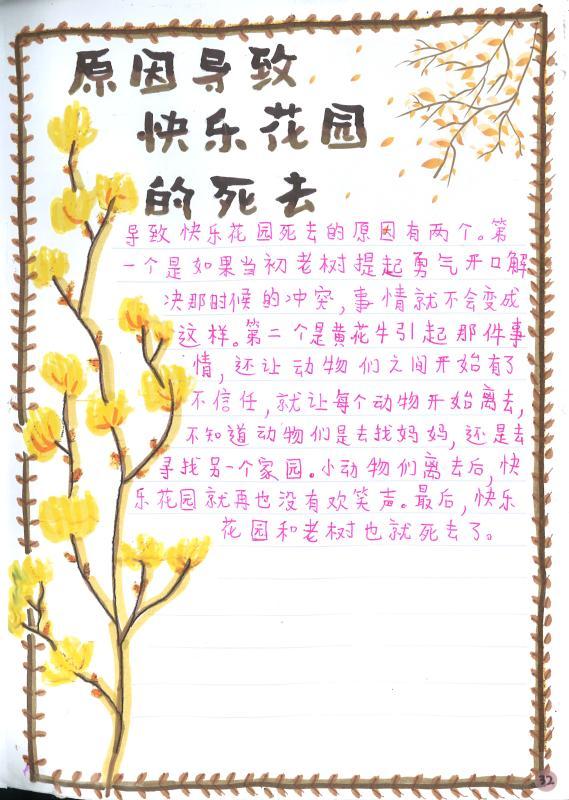 原因导致
快乐花园
的死去
导致快乐花园死去的原因有两个。第
一个是如果当初老树提起勇气开口解
决那时候的冲突，事情就不会变成
这样。第二个是黄花牛引起那件事
情，还让动物们之间开始有了
不信任，就让每个动物开始离去，
不知道动物们是去找妈妈，还是去
寻找另一个家园。小动物们离去后，快
乐花园就再也没有欢笑声。最后，快乐
花园和老树也就死去了。
32